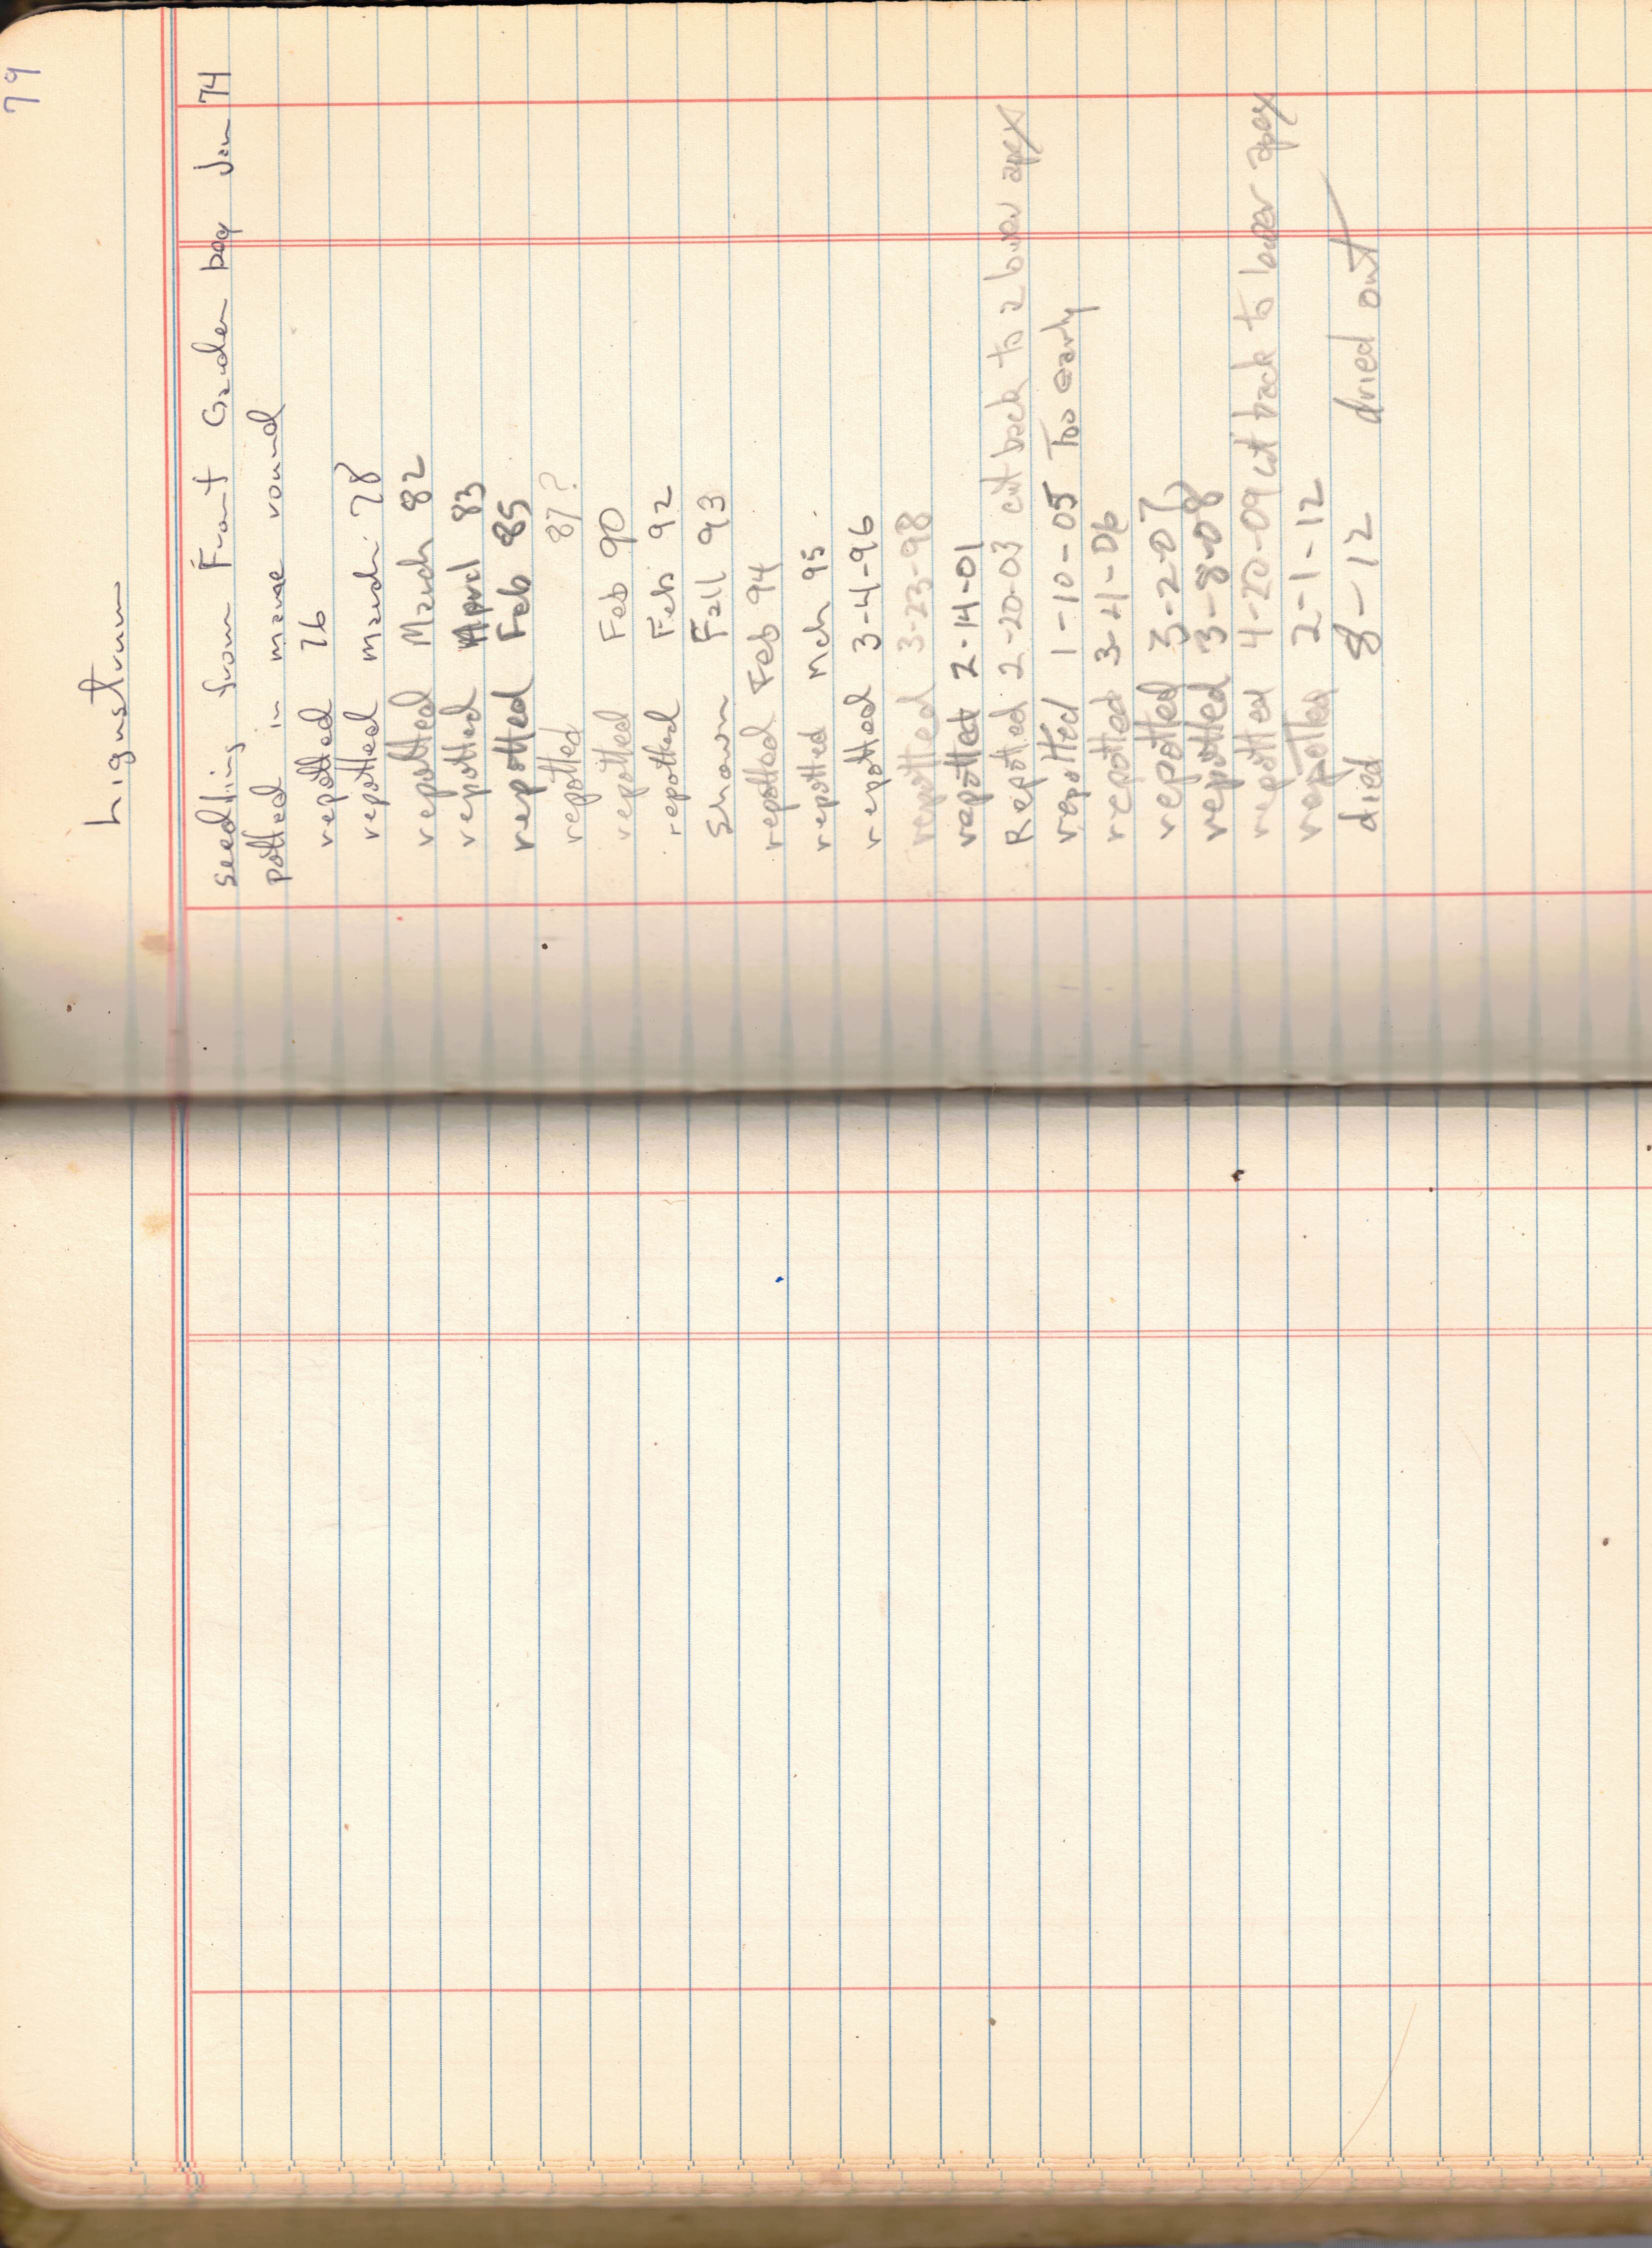 79
Ligustrum
seedling from Front Garden bed Jan 74
potted in mame round
repotted 76
repotted march 78
repotted March 82
repotted April 83
repotted Feb 85
repotted 87?
repotted Feb 90
repotted Feb 92
Shown Fall 93
repotted Feb 94
repotted Mch 95
repotted 3-4-96
repotted 3-23-98
repotted 2-14-01
Repotted 2-20-03 cut back to a lower apex
repotted 1-10-05 Too early
repotted 3-4-06
repotted 3-2-07
repotted 3-8-08
repotted 4-20-09 cut back to lower apex
repotted 2-1-12
died 8-12 dried out